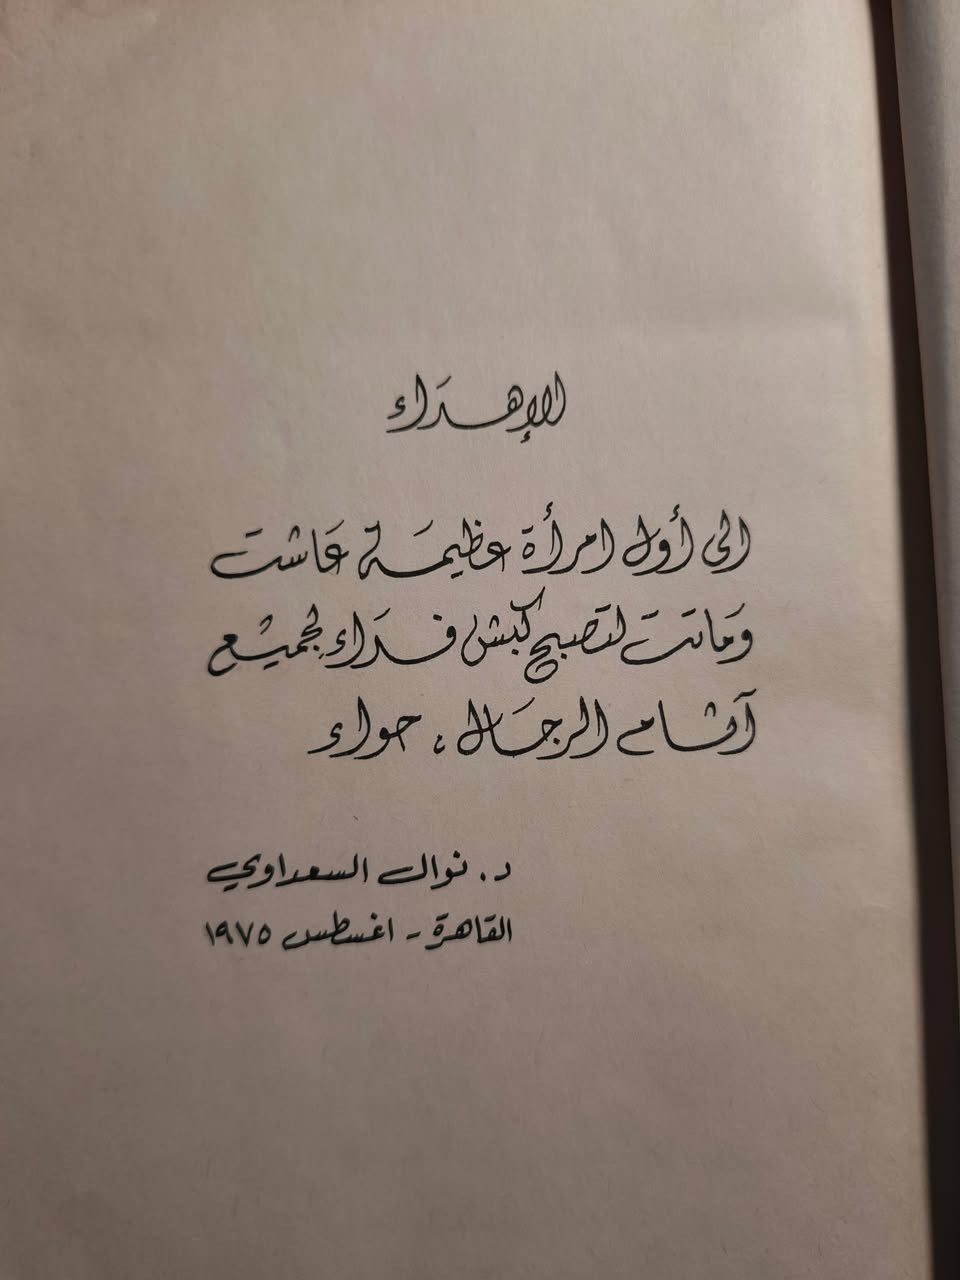 الإهداء
الى أول امرأة عظيمة عاشت
وماتت لتصبح كبش فداء لجميع
آثام الرجال ، حواء
د. نوال السعداوي
القاهرة - اغسطس ١٩٧٥